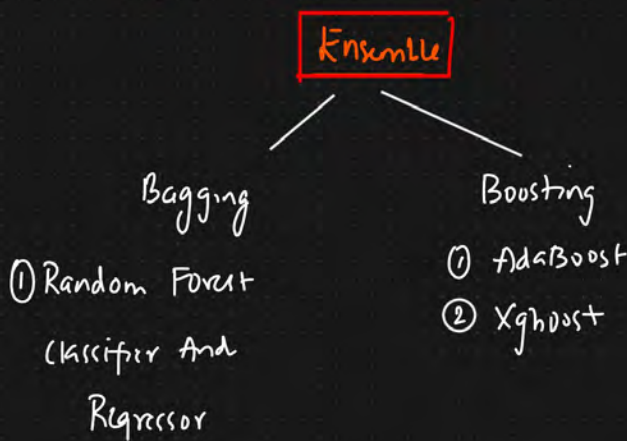 Ensemble
Bagging
① Random Forest
Classifier And
Regressor
Boosting
① AdaBoost
② Xgboost